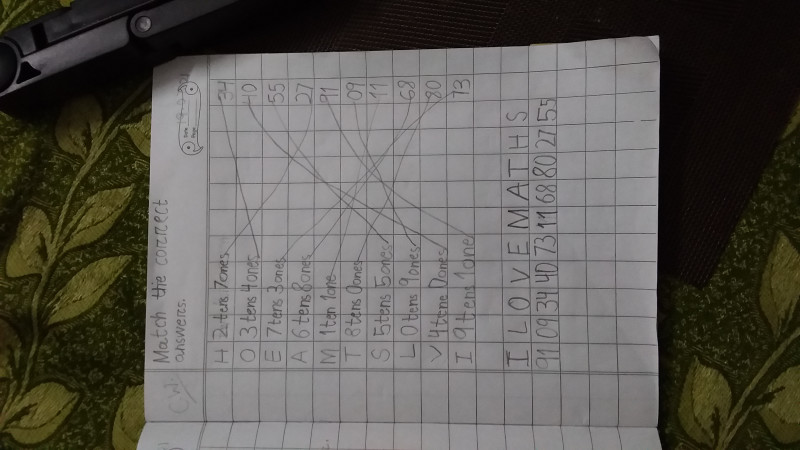 Match the correct
answers.
H 2 tens 7 ones 34
O 3 tens 4 ones 40
E 7 tens 3 ones 55
A 6 tens 8 ones 27
M 1 ten 1 one 91
T 8 tens 0 ones 09
S 5 tens 5 ones 11
L 0 tens 9 ones 68
V 4 tens 0 ones 80
I 9 tens 1 one 73
I L O V E M A T H S
91 09 34 40 73 11 68 80 27 55